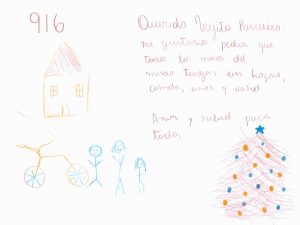 916
Querido Viejito Pascuero:
me gustaria pedir que
todos los niños del
mundo tengan un hogar,
comida, amor y salud
Amor y salud para
todos.